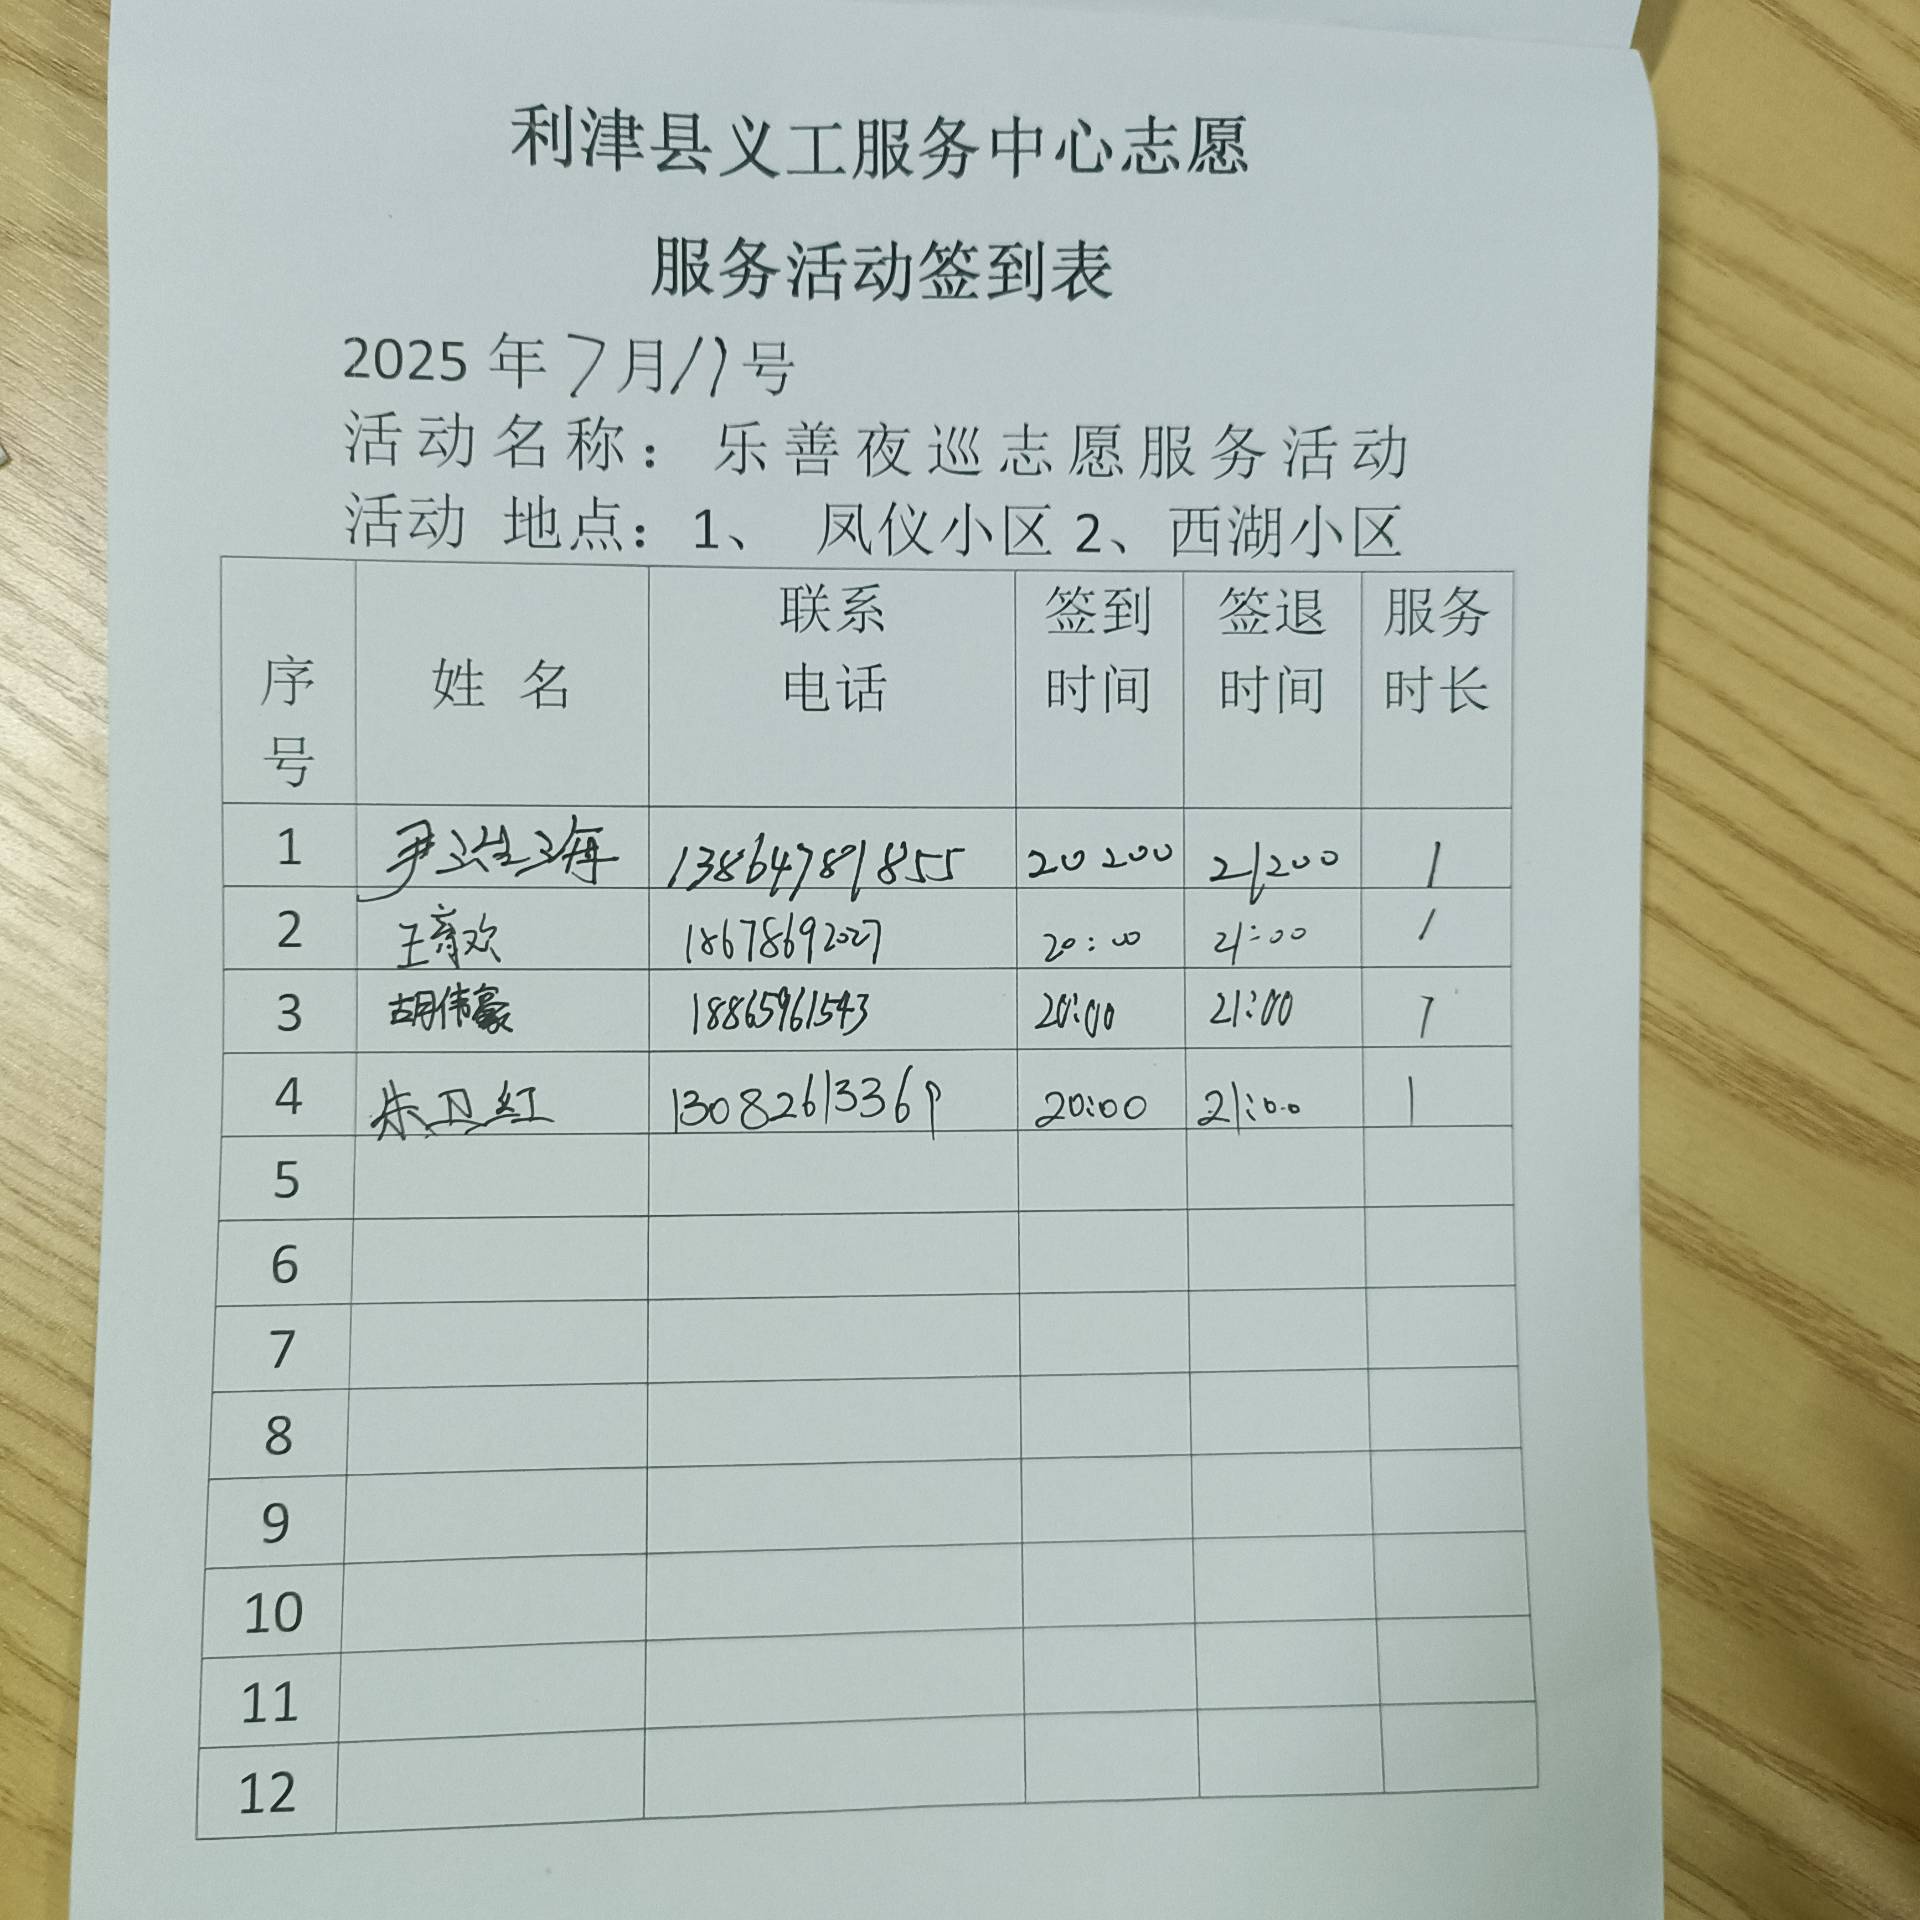 利津县义工服务中心志愿
服务活动签到表
2025 年 7月17号
活动名称：乐善夜巡志愿服务活动
活动 地点：1、 凤仪小区 2、西湖小区
序号 姓 名 联系电话 签到时间 签退时间 服务时长
1 尹海 13864789855 20:00 21:00 1
2 王育欢 18678692027 20:00 21:00 1
3 胡伟豪 18865961543 20:00 21:00 1
4 朱卫红 13082613369 20:00 21:00 1
5
6
7
8
9
10
11
12